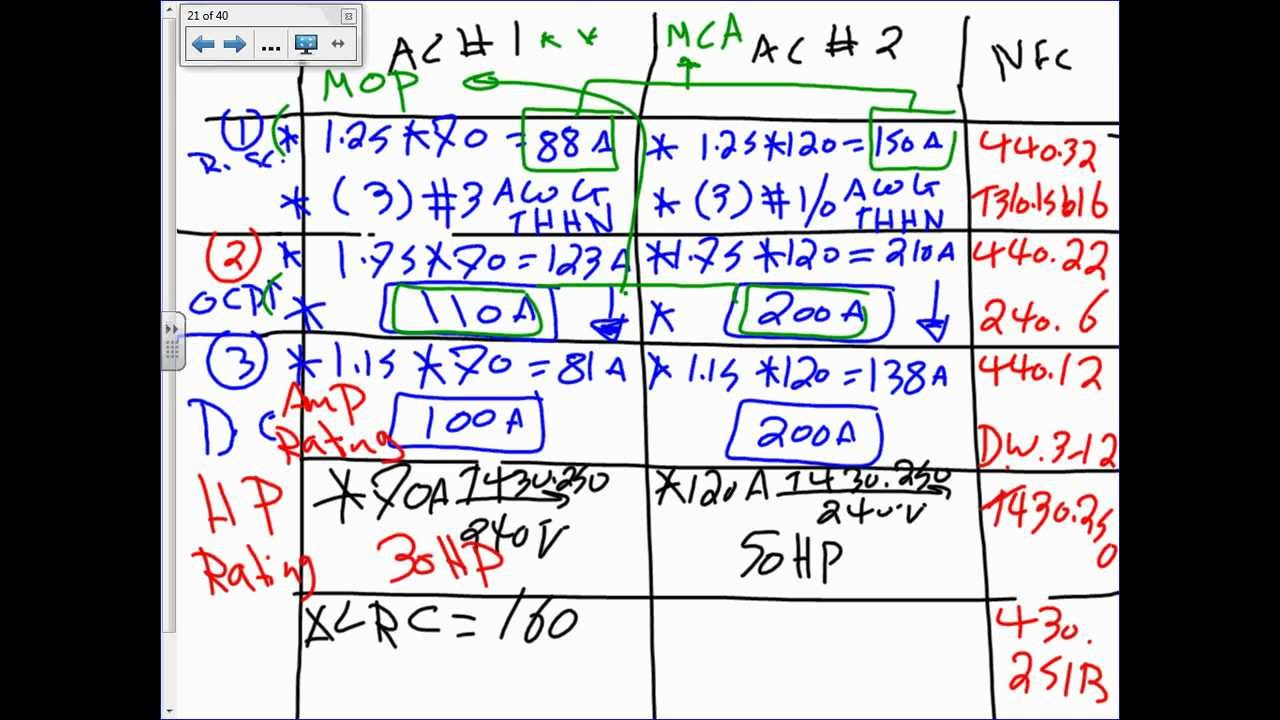 21 of 40
AC # 1 * * MCA AC # 2 NEC
MOP
① * 1.25*70 = 88 A * 1.25*120 = 150 A 440.32
R. SC. * (3) #3 AWG THHN * (3) #1/0 AWG THHN T310.15b16
② * 1.75*70 = 123 A *1.75*120 = 210A 440.22
OCPD * 110A * 200A 240.6
③ *1.15*70 = 81A * 1.15*120 = 138A 440.12
DC Amp Rating 100A 200A D.W. 3-12
HP *70A T430.250 *120A T430.250 T430.250
240V 240V
Rating 30HP 50HP
*LRC = 160 430.
251B